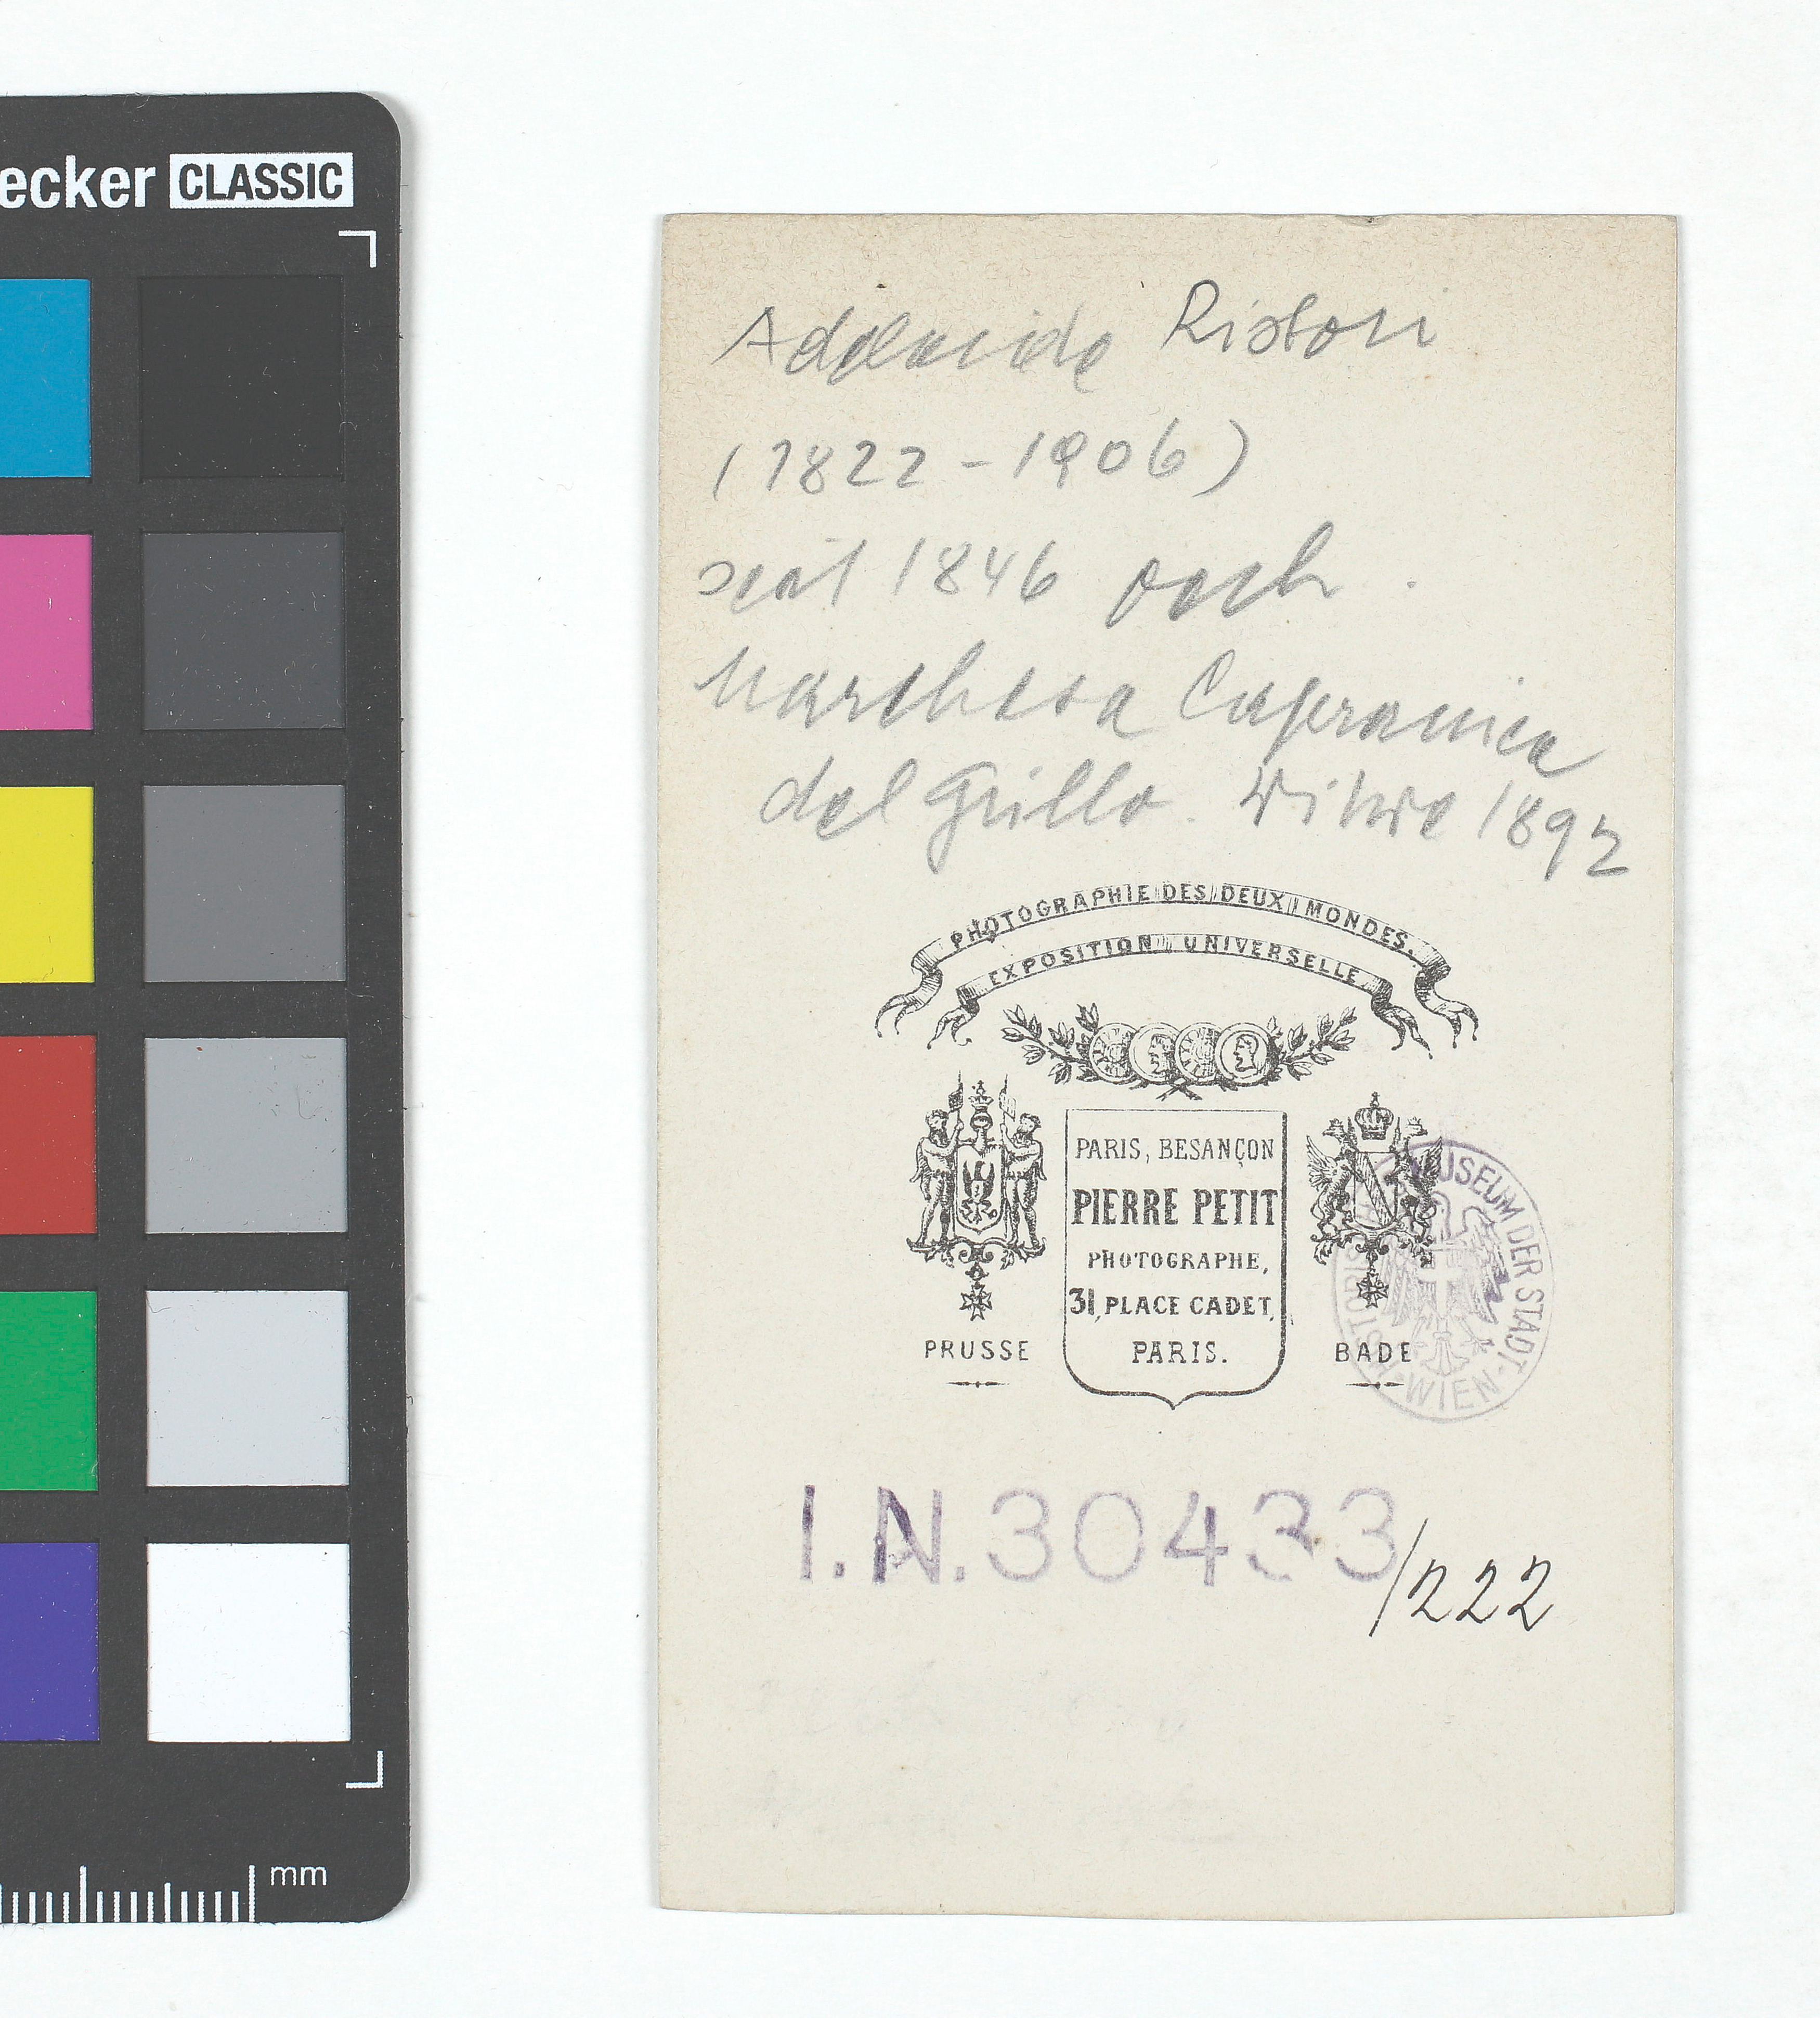 ecker CLASSIC
mm
Adelaide Ristori
(1822-1906)
seit 1846 verh.
Marchesa Capranica
del Grillo. Witwe 1892
PHOTOGRAPHIE DES DEUX MONDES.
EXPOSITION UNIVERSELLE
PARIS, BESANÇON
PIERRE PETIT
PHOTOGRAPHE,
31, PLACE CADET,
PARIS.
PRUSSE
BADE
MUSEUM DER STADT WIEN
I.N.30433/222